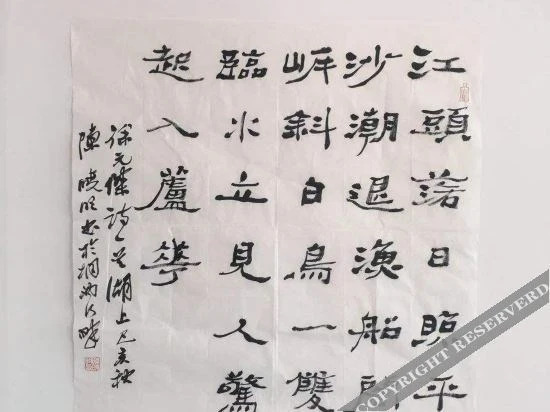 江頭落日照平
沙潮退漁船
岸斜白鳥一雙
臨水立見人驚
起入蘆華
徐元傑詩一首湖上己亥秋
陳曉明书於桐汭河畔
COPYRIGHT RESERVERD